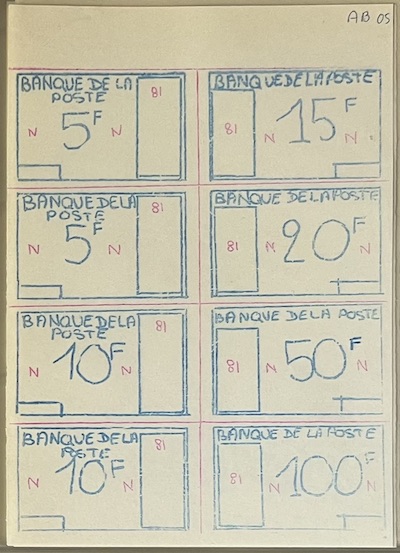 AB 05
BANQUE DE LA
POSTE
5F
N
N
81
BANQUE DE LA POSTE
15F
81
N
N
BANQUE DE LA
POSTE
5F
N
N
81
BANQUE DE LA POSTE
20F
81
N
N
BANQUE DE LA
POSTE
10F
N
N
81
BANQUE DE LA POSTE
50F
81
N
N
BANQUE DE LA
POSTE
10F
N
N
81
BANQUE DE LA POSTE
100F
81
N
N